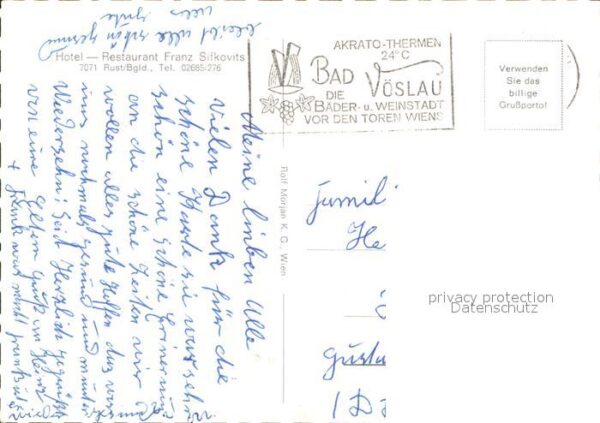 Hotel — Restaurant Franz Sifkovits
7071 Rust/Bgld., Tel. 02685-276
AKRATO-THERMEN
24°C
BAD VÖSLAU
DIE
BÄDER- u. WEINSTADT
VOR DEN TOREN WIENS
Verwenden
Sie das
billige
Grußporto!
Meine lieben Alle
Vielen Dank für die
schöne Karte sie war sehr
schön eine schöne
an die schöne Zeiten wir
wollen alles gute hoffen das wir
uns nochmals gesund und munter
Wiedersehn! Seid Herzlich gegrüßt
von eure
Gruß
bleibt alle schön gesund
Rolf Morjan K. G., Wien
Famil
He
Gusta
1 D
privacy protection
Datenschutz